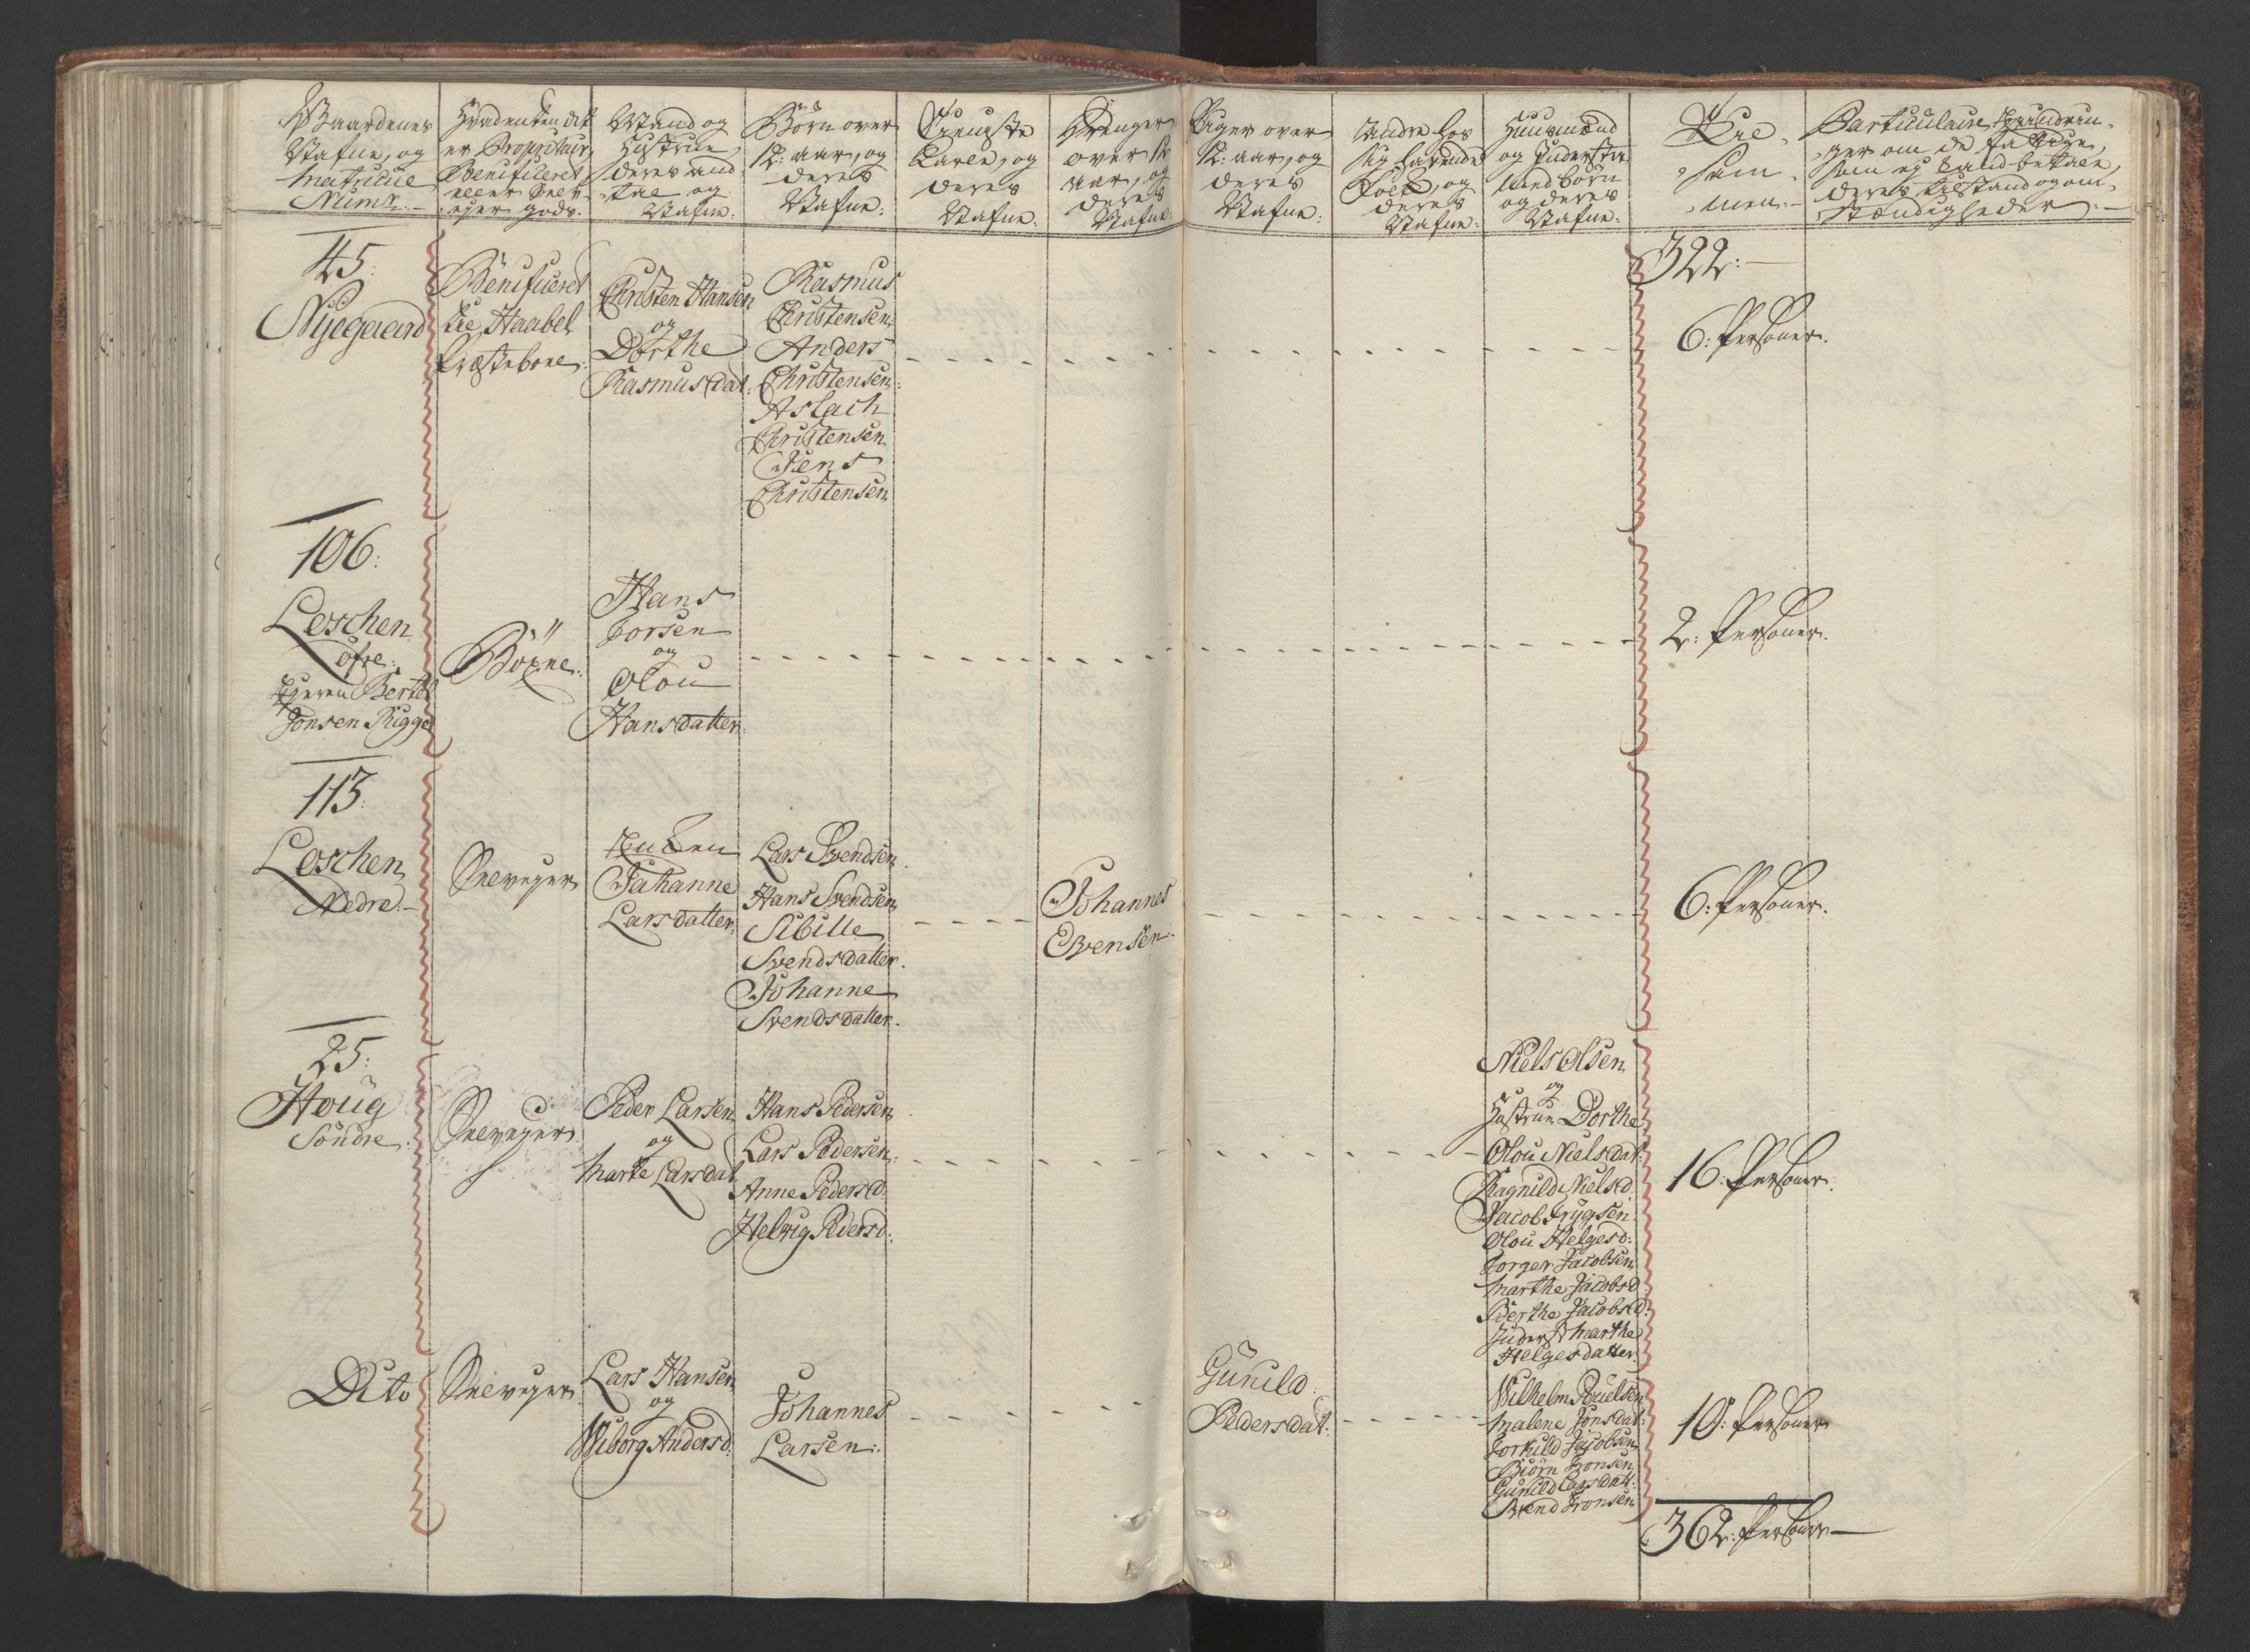 Gaardenes
Nafne, og
Matricul
Numr:
Hvad enten det
er Proprietair,
Beneficeret
eller Selv-
ejer gods.
Mand og
Hustrue,
deres and-
tal og
Nafne:
Börn over
12: aar, og
deres
Nafne:
Tieniste
Karle, og
deres
Nafne:
Drenger
over 12
aar, og
deres
Nafne
Piger over
12: aar, og
deres
Nafne:
Andre hos
sig havende
Folk, og
deres
Nafne:
Huusmænd
og Inderster
med börn
og deres
Nafne:
Tilsammen:
Particulaire
ger om de fattige,
som ej kand betale,
deres tilstand og om-
stændigheder:
45:
Nyegaard
Benificeret
til Haabel
Præstebole:
Christen Hansen
og
Dorthe
Rasmusdat:
Rasmus
Christensen
Anders
Christensen:
Aslach
Christensen
Jens
Christensen
322:
6: Personer.
106:
Loschen
öfre:
Ejeren Bertel
Jonsen Rigge
Böxne:
Hans
Torsen
og
Olou
Hansdatter:
2: Personer.
113:
Loschen
Nedre:
Selvejer
Enken
Johanne
Larsdatter:
Lars Svendsen
Hans Svendsen
Sibille
Svendsdatter.
Johanne
Svendsdatter.
Johannes
Evensen:
6: Personer.
25:
Houg
Söndre:
Selvejer
Peder Larsen
og
Marte Larsdat
Hans Pedersen
Lars Pedersen:
Anne Pedersd:
Helvig Pedersd:
Niels Olsen
og
Hustrue Dorthe
Olou Nielsdat:
Ragnild Nielsd:
Jacob Trygsen
Olou Helgesd:
Torger Jacobsen
Marthe Jacobsd:
Berthe Jacobsd:
Inderst Marthe
Helgesdatter:
16: Personer.
Dito
Selvejer
Lars Hansen
og
Wiborg Andersd:
Johannes
Larsen:
Gunild
Pedersdat:
Wilhelm Poulsen
Malene Jonsdat:
Torkild Jacobsen
Biörn Tronsen
Gunild Larsdatt:
Svend Tronsen
10: Personer
362: Personer